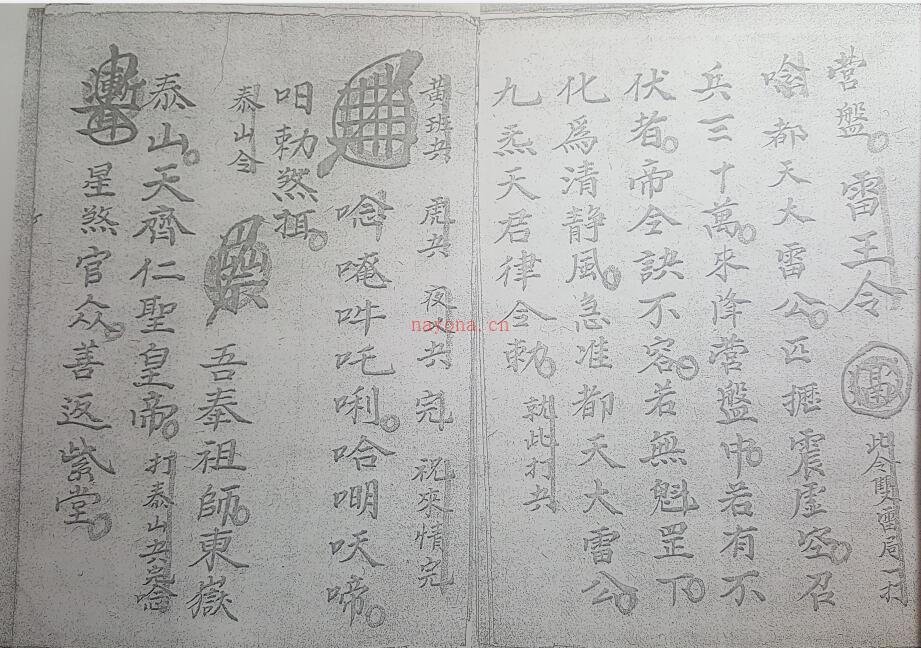 营盤 雷王令 此令雙雷局一打
唅都天大雷公匹攊震虚空召
兵三十萬來降营盤中若有不
伏者帝令訣不容若無魁罡下
化爲清静風急准都天大雷公
九炁天君律令勅 就此打兵
黄班兵 虎兵 夜火兵 完 祝來情完
唸唵吽吒唎哈唎㕭啼
呾勅煞摄
泰山令 吾奉祖師東嶽
泰山天齊仁聖皇帝 打泰山兵完唸
星煞官众善返紫堂
nayona.cn